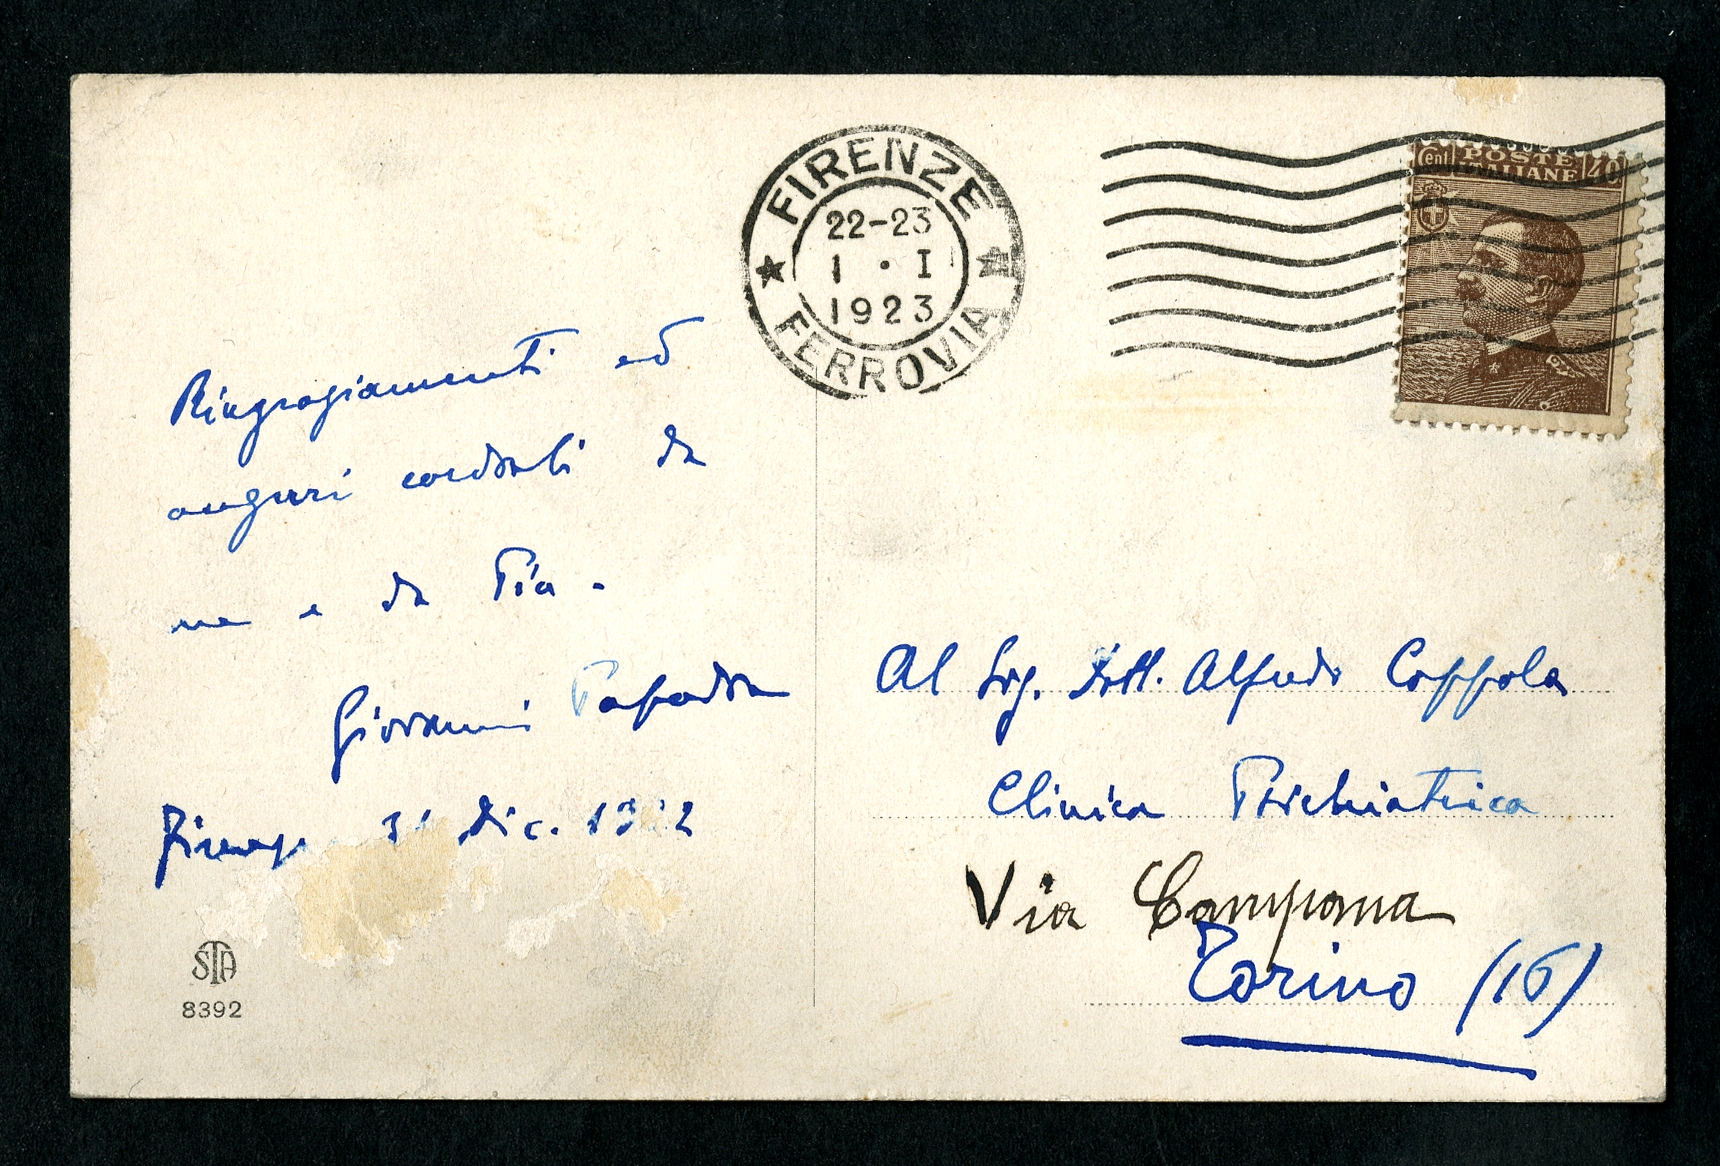 FIRENZE
22-23
1 · I
1923
FERROVIA
Cent POSTE ITALIANE 40
Ringraziamenti ed
auguri cordiali da
me e da Pia -
Giovanni
Firenze 31 dic. 1922
STA
8392
Al Sig. Dott. Alfredo Coppola
Clinica Psichiatrica
Via Campana
Torino (16)